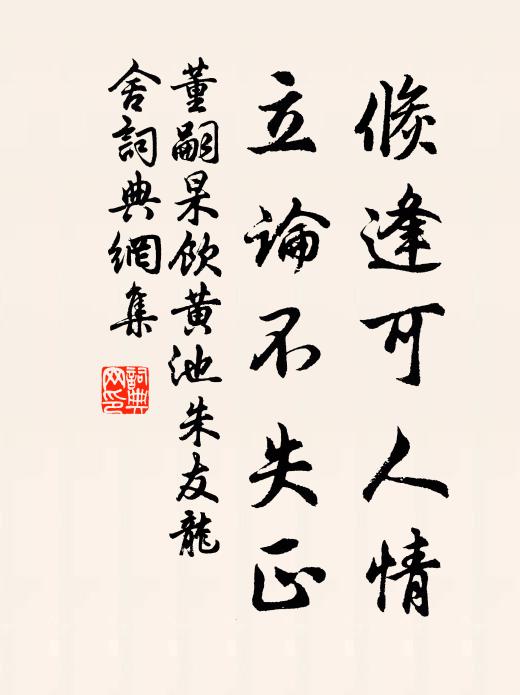 倏逢可人情
立論不失正
董嗣杲飲黄池朱友龍
舍詞典網集
詞典
网印